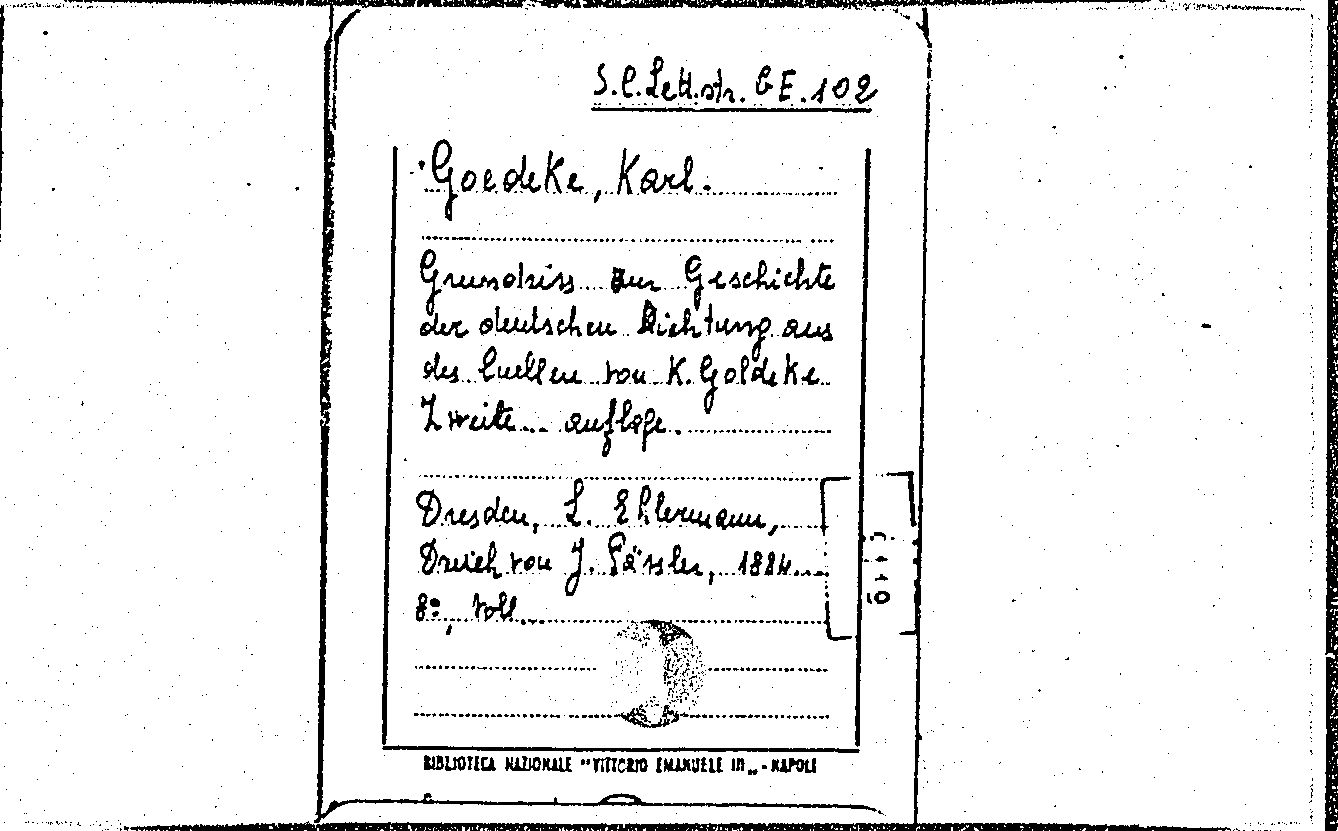 S.C. Lett. str. GE. 102
Goedeke, Karl.
Grundriss zur Geschichte
der deutschen Dichtung aus
des Cuellen von K. Goldeke
Zweite... auflage.
Dresden, L. Ehlermann,
Druch von J. Pässler, 1884...
8º, voll...
BIBLIOTECA NAZIONALE "VITTORIO EMANUELE III„ - NAPOLI